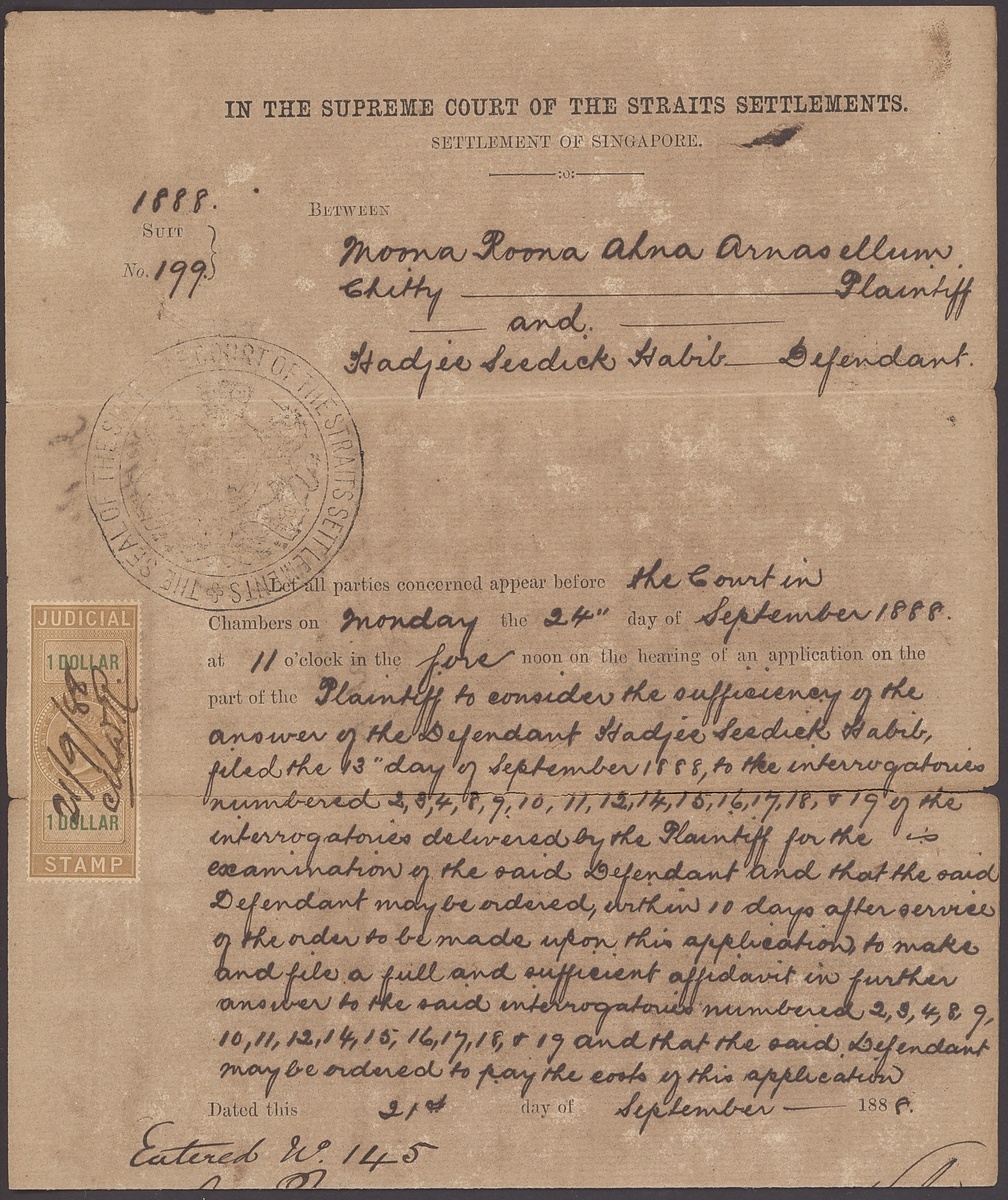 IN THE SUPREME COURT OF THE STRAITS SETTLEMENTS.
SETTLEMENT OF SINGAPORE.
:o:
1888.
SUIT
No. 199
BETWEEN
Moona Roona Ahna Arnasellum
Chitty Plaintiff
and.
Hadjee Seedick Habib Defendant.
THE SEAL OF THE COURT OF THE STRAITS SETTLEMENTS
Let all parties concerned appear before the Court in
Chambers on Monday the 24" day of September 1888.
at 11 o'clock in the fore noon on the hearing of an application on the
part of the Plaintiff to consider the sufficiency of the
answer of the Defendant Hadjee Seedick Habib,
filed the 13" day of September 1888, to the interrogatories
numbered 2, 3, 4, 8, 9, 10, 11, 12, 14, 15, 16, 17, 18, & 19 of the
interrogatories delivered by the Plaintiff for the
examination of the said Defendant and that the said
Defendant may be ordered, within 10 days after service
of the order to be made upon this application, to make
and file a full and sufficient affidavit in further
answer to the said interrogatories numbered 2, 3, 4, 8, 9,
10, 11, 12, 14, 15, 16, 17, 18, & 19 and that the said Defendant
may be ordered to pay the costs of this application
Dated this 21st day of September 1888.
JUDICIAL
1 DOLLAR
21/9/88
1 DOLLAR
STAMP
Entered No. 145